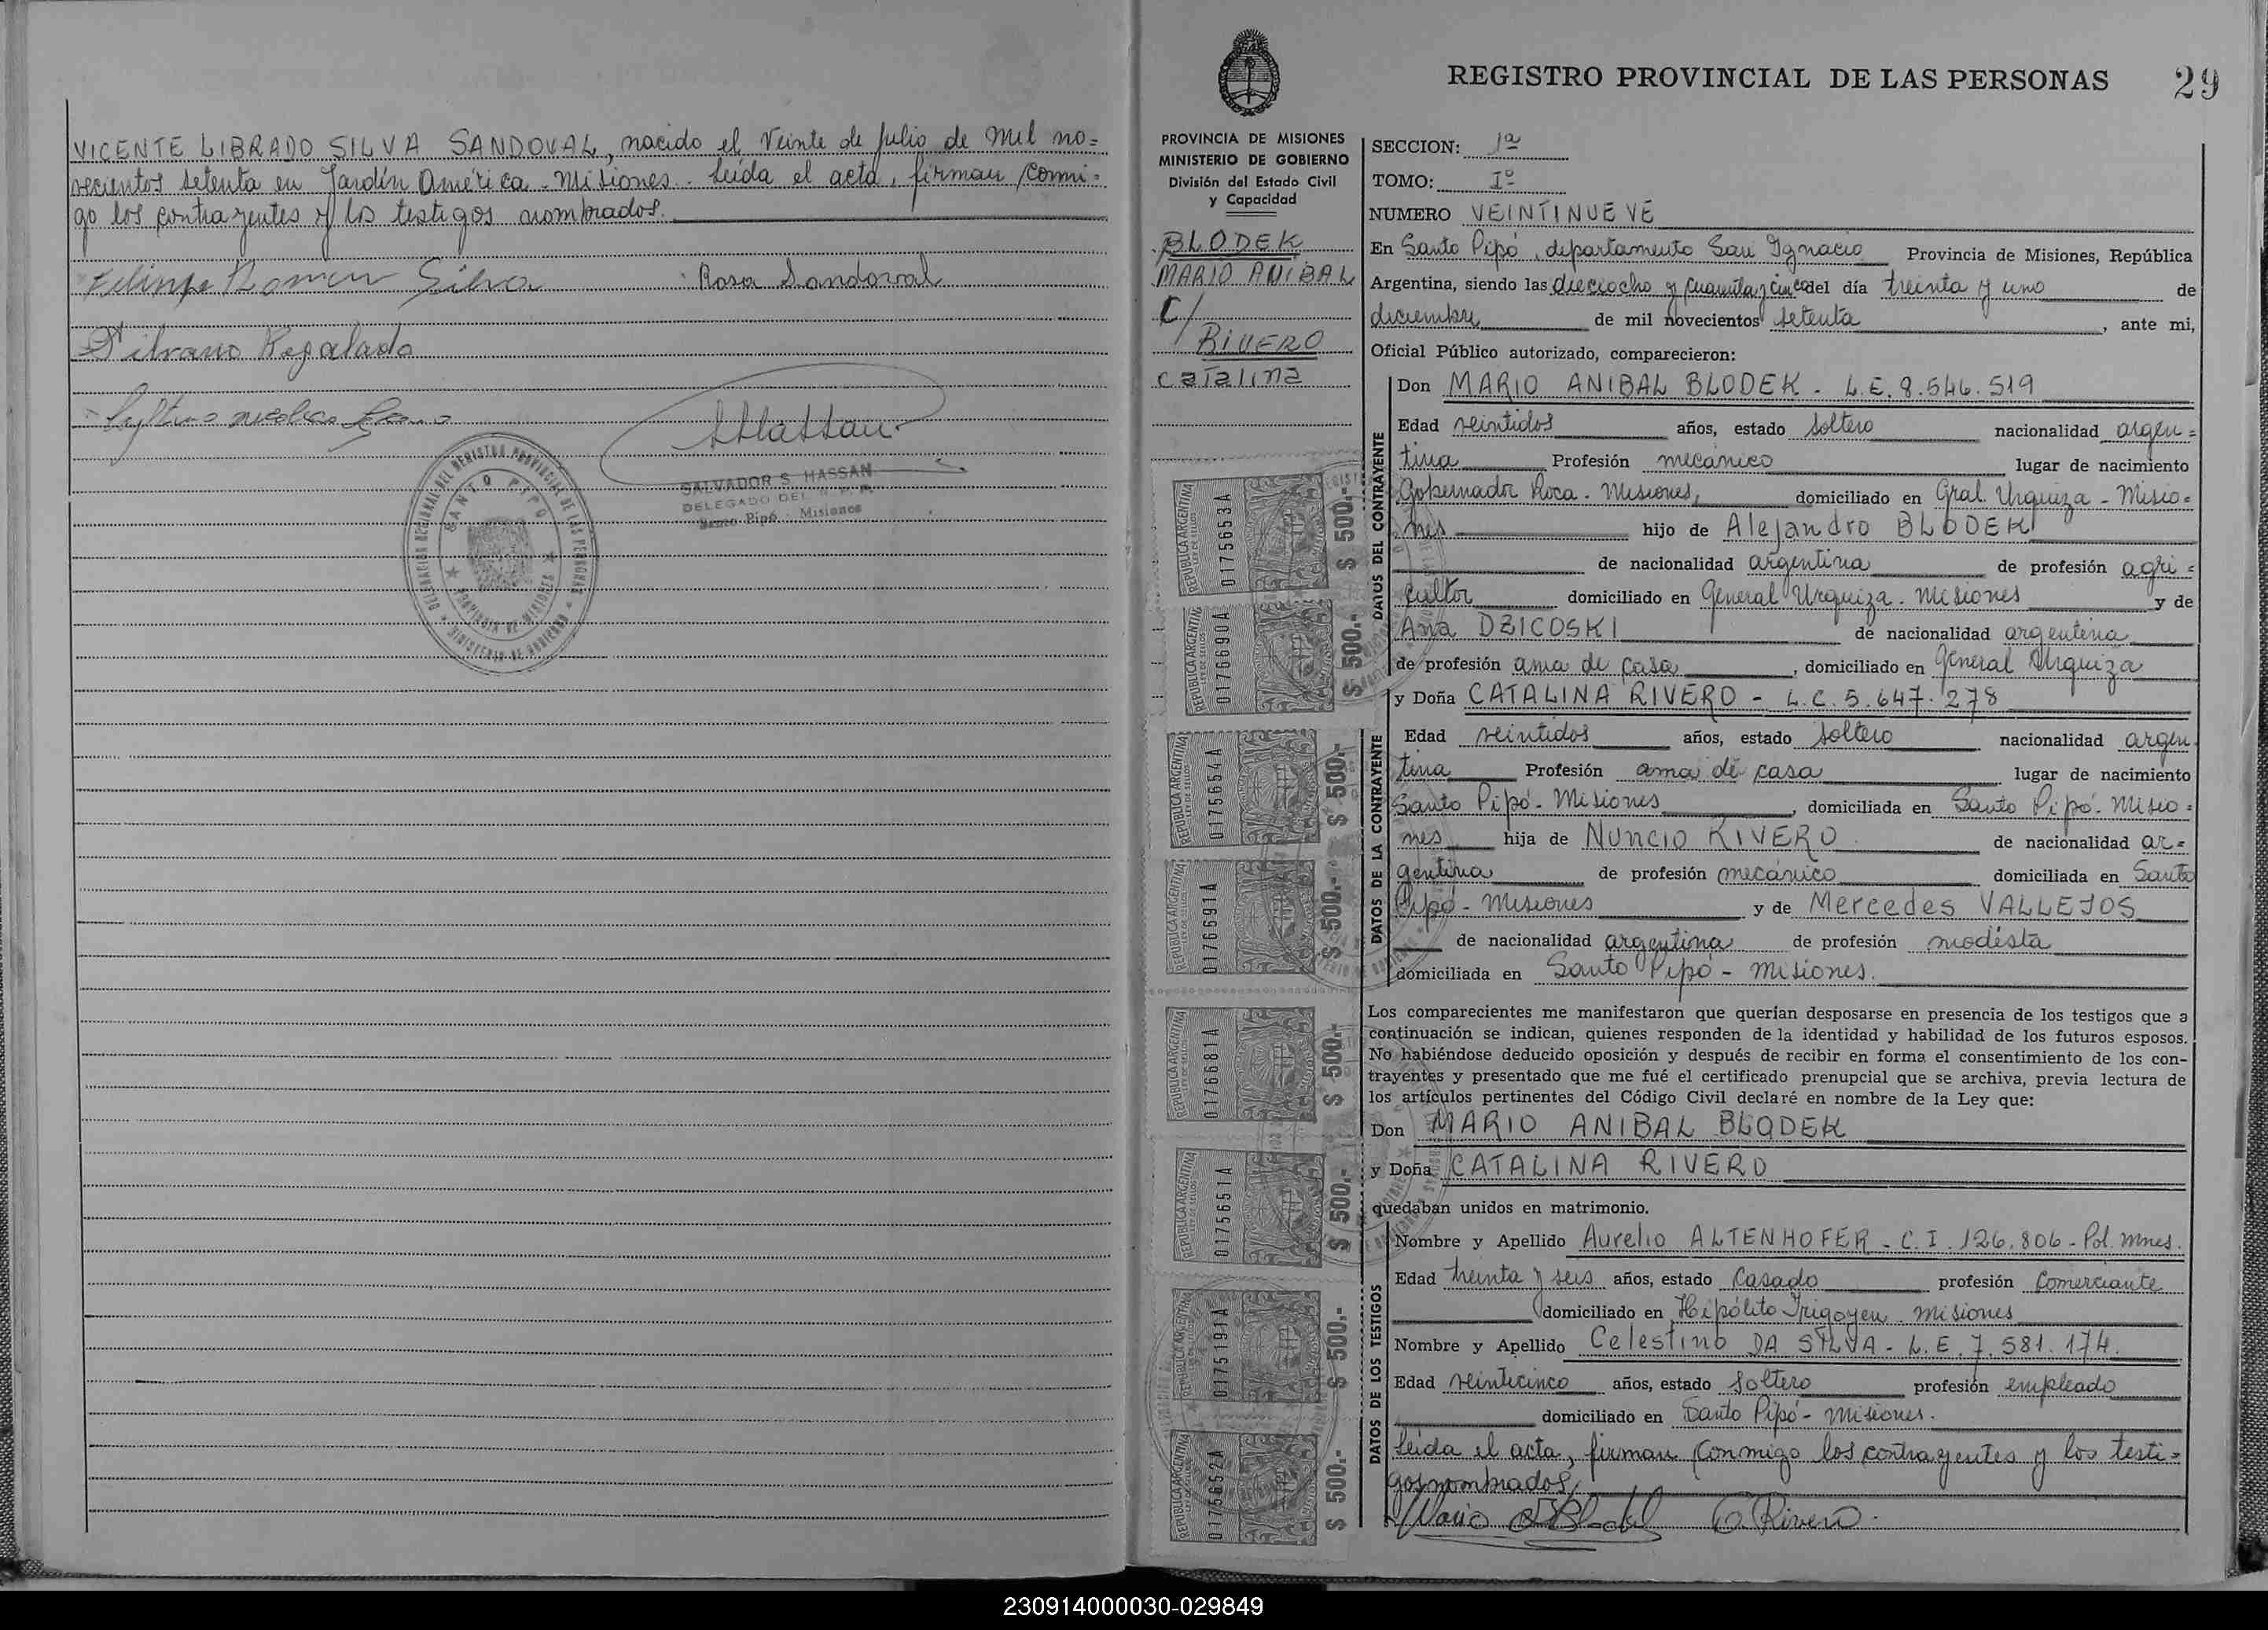 VICENTE LIBRADO SILVA SANDOVAL, nacido el Veinte de Julio de Mil no=
vecientos setenta en Jardín América - Misiones. Leída el acta, firman conmi=
go los contrayentes y los testigos nombrados.
Silva Rosa Sandoval
Silvano Regalado
SALVADOR S. HASSAN
DELEGADO DEL R. P. P.
Santo Pipó - Misiones
SANTO PIPO
REGISTRO PROVINCIAL DE LAS PERSONAS 29
PROVINCIA DE MISIONES
MINISTERIO DE GOBIERNO
División del Estado Civil
y Capacidad
BLODEK
MARIO ANIBAL
C/
RIVERO
Catalina
REPUBLICA ARGENTINA 0175653A $ 500.-
REPUBLICA ARGENTINA 0176690A $ 500.-
REPUBLICA ARGENTINA 0175654A $ 500.-
REPUBLICA ARGENTINA 0176691A $ 500.-
REPUBLICA ARGENTINA 0176681A $ 500.-
REPUBLICA ARGENTINA 0175651A $ 500.-
REPUBLICA ARGENTINA 0175191A $ 500.-
REPUBLICA ARGENTINA 0175652A $ 500.-
SECCION: 1ª
TOMO: Iº
NUMERO VEINTINUEVE
En Santo Pipó, departamento San Ignacio Provincia de Misiones, República
Argentina, siendo las dieciocho y cuarenta y cinco del día treinta y uno de
diciembre de mil novecientos setenta, ante mi,
Oficial Público autorizado, comparecieron:
DATOS DEL CONTRAYENTE
Don MARIO ANIBAL BLODEK - L.E. 8.546.519
Edad veintidos años, estado soltero nacionalidad argen=
tina Profesión mecánico lugar de nacimiento
Gobernador Roca - Misiones, domiciliado en Gral. Urquiza - Misio=
nes hijo de Alejandro BLODEK
de nacionalidad argentina de profesión agri=
cultor domiciliado en General Urquiza - Misiones y de
Ana DZICOSKI de nacionalidad argentina
de profesión ama de casa, domiciliado en General Urquiza
DATOS DE LA CONTRAYENTE
y Doña CATALINA RIVERO - L.C. 5.647.278
Edad veintidos años, estado soltero nacionalidad argen
tina Profesión ama de casa lugar de nacimiento
Santo Pipó - Misiones, domiciliada en Santo Pipó - Misio=
nes hija de NUNCIO RIVERO de nacionalidad ar=
gentina de profesión mecánico domiciliada en Santo
Pipó - Misiones y de Mercedes VALLEJOS
de nacionalidad argentina de profesión modista
domiciliada en Santo Pipó - Misiones.
Los comparecientes me manifestaron que querían desposarse en presencia de los testigos que a
continuación se indican, quienes responden de la identidad y habilidad de los futuros esposos.
No habiéndose deducido oposición y después de recibir en forma el consentimiento de los con-
trayentes y presentado que me fué el certificado prenupcial que se archiva, previa lectura de
los artículos pertinentes del Código Civil declaré en nombre de la Ley que:
Don MARIO ANIBAL BLODEK
y Doña CATALINA RIVERO
quedaban unidos en matrimonio.
DATOS DE LOS TESTIGOS
Nombre y Apellido Aurelio ALTENHOFER - C.I. 126.806 - Pol. Mnes.
Edad treinta y seis años, estado Casado profesión Comerciante
domiciliado en Hipólito Irigoyen - Misiones
Nombre y Apellido Celestino DA SILVA - L.E. 7.581.174.
Edad veinticinco años, estado soltero profesión empleado
domiciliado en Santo Pipó - Misiones.
Leída el acta, firman conmigo los contrayentes y los testi=
gos nombrados,
Mario A Blodek C. Rivero
230914000030-029849